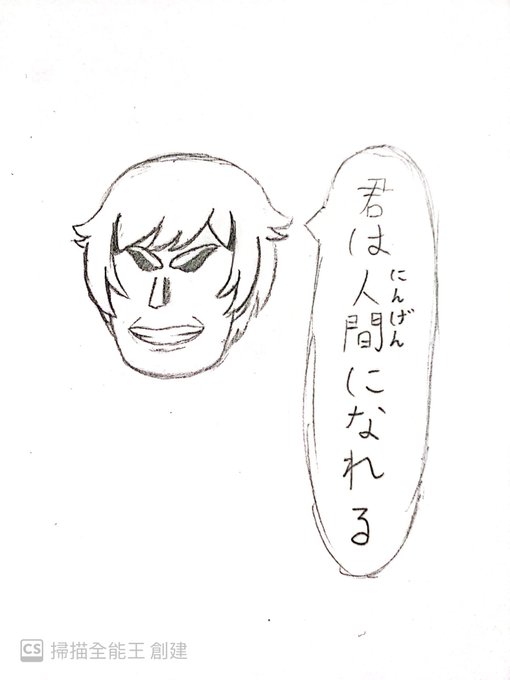 君は人間になれる
にんげん
CS 掃描全能王 創建